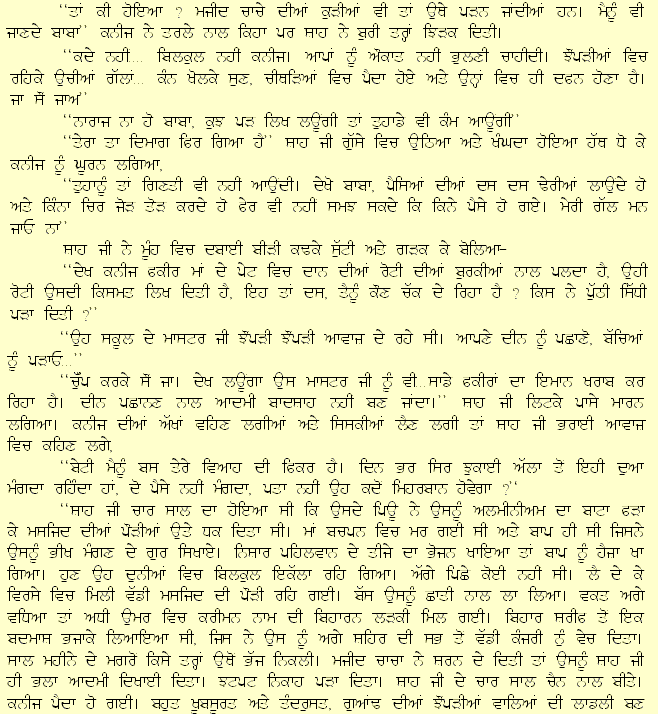 ‘‘ਤਾਂ ਕੀ ਹੋਇਆ ? ਮਜੀਦ ਚਾਚੇ ਦੀਆਂ ਕੁੜੀਆਂ ਵੀ ਤਾਂ ਉਥੇ ਪੜਨ ਜਾਂਦੀਆਂ ਹਨ। ਮੈਨੂੰ ਵੀ
ਜਾਣਦੇ ਬਾਬਾ’’ ਕਨੀਜ ਨੇ ਤਰਲੇ ਨਾਲ ਕਿਹਾ ਪਰ ਸਾਹ ਨੇ ਬੁਰੀ ਤਰ੍ਹਾਂ ਝਿੜਕ ਦਿਤੀ।
‘‘ਕਦੇ ਨਹੀਂ... ਬਿਲਕੁਲ ਨਹੀਂ ਕਨੀਜ। ਆਪਾਂ ਨੂੰ ਔਕਾਤ ਨਹੀਂ ਭੁਲਣੀ ਚਾਹੀਦੀ। ਝੌਂਪੜੀਆਂ ਵਿਚ
ਰਹਿਕੇ ਉਚੀਆਂ ਗੱਲਾਂ... ਕੰਨ ਖੋਲਕੇ ਸੁਣ, ਚੀਥੜਿਆਂ ਵਿਚ ਪੈਦਾ ਹੋਏ ਅਤੇ ਉਨ੍ਹਾਂ ਵਿਚ ਹੀ ਦਫਨ ਹੋਣਾ ਹੈ।
ਜਾ ਸੌਂ ਜਾਅ’’
‘‘ਨਾਰਾਜ ਨਾ ਹੋ ਬਾਬਾ, ਕੁਝ ਪੜ ਲਿਖ ਲਊਂਗੀ ਤਾਂ ਤੁਹਾਡੇ ਵੀ ਕੰਮ ਆਊਂਗੀ’’
‘‘ਤੇਰਾ ਤਾ ਦਿਮਾਗ ਫਿਰ ਗਿਆ ਹੈ’’ ਸਾਹ ਜੀ ਗੁੱਸੇ ਵਿਚ ਉਠਿਆ ਅਤੇ ਖੰਘਦਾ ਹੋਇਆ ਹੱਥ ਧੋ ਕੇ
ਕਨੀਜ ਨੂੰ ਘੂਰਨ ਲਗਿਆ,
‘‘ਤੁਹਾਨੂੰ ਤਾਂ ਗਿਣਤੀ ਵੀ ਨਹੀ ਆਉਂਦੀ। ਦੇਖੋ ਬਾਬਾ, ਪੈਸਿਆਂ ਦੀਆਂ ਦਸ ਦਸ ਢੇਰੀਆਂ ਲਾਉਦੇ ਹੋ
ਅਤੇ ਕਿੰਨਾ ਚਿਰ ਜੋੜ ਤੋੜ ਕਰਦੇ ਹੋ ਫੇਰ ਵੀ ਨਹੀ ਸਮਝ ਸਕਦੇ ਕਿ ਕਿਨੇ ਪੈਸੇ ਹੋ ਗਏ। ਮੇਰੀ ਗੱਲ ਮਨ
ਜਾਓ ਨਾਂ’’
ਸ਼ਾਹ ਜੀ ਨੇ ਮੂੰਹ ਵਿਚ ਦਬਾਈ ਬੀੜੀ ਕਢਕੇ ਸੁੱਟੀ ਅਤੇ ਗੜਕ ਕੇ ਬੋਲਿਆ–
‘‘ਦੇਖ ਕਨੀਜ ਫਕੀਰ ਮਾਂ ਦੇ ਪੇਟ ਵਿਚ ਦਾਨ ਦੀਆਂ ਰੋਟੀ ਦੀਆਂ ਬੁਰਕੀਆਂ ਨਾਲ ਪਲਦਾ ਹੈ, ਉਹੀ
ਰੋਟੀ ਉਸਦੀ ਕਿਸਮਤ ਲਿਖ ਦਿਤੀ ਹੈ, ਇਹ ਤਾਂ ਦਸ, ਤੈਨੂੰ ਕੌਣ ਚੱਕ ਦੇ ਰਿਹਾ ਹੈ ? ਕਿਸ ਨੇ ਪੁੱਠੀ ਸਿੱਧੀ
ਪੜਾ ਦਿਤੀ ?’’
‘‘ਉਹ ਸਕੂਲ ਦੇ ਮਾਸਟਰ ਜੀ ਝੌਂਪੜੀ ਝੌਂਪੜੀ ਆਵਾਜ ਦੇ ਰਹੇ ਸੀ। ਆਪਣੇ ਦੀਨ ਨੂੰ ਪਛਾਣੋ, ਬੱਚਿਆਂ
ਨੂੰ ਪੜਾਓ...’’
‘‘ਚੁੱਪ ਕਰਕੇ ਸੌਂ ਜਾ। ਦੇਖ ਲਊਗਾ ਉਸ ਮਾਸਟਰ ਜੀ ਨੂੰ ਵੀ...ਸਾਡੇ ਫਕੀਰਾਂ ਦਾ ਇਮਾਨ ਖਰਾਬ ਕਰ
ਰਿਹਾ ਹੈ। ਦੀਨ ਪਛਾਨਣ ਨਾਲ ਆਦਮੀ ਬਾਦਸਾਹ ਨਹੀਂ ਬਣ ਜਾਂਦਾ।’’ ਸਾਹ ਜੀ ਲਿਟਕੇ ਪਾਸੇ ਮਾਰਨ
ਲਗਿਆ। ਕਨੀਜ ਦੀਆਂ ਅੱਖਾਂ ਵਹਿਣ ਲਗੀਆਂ ਅਤੇ ਸਿਸਕੀਆਂ ਲੈਣ ਲਗੀ ਤਾਂ ਸਾਹ ਜੀ ਭਰਾਈ ਆਵਾਜ
ਵਿਚ ਕਹਿਣ ਲਗੇ,
‘‘ਬੇਟੀ ਮੈਨੂੰ ਬਸ ਤੇਰੇ ਵਿਆਹ ਦੀ ਫਿਕਰ ਹੈ। ਦਿਨ ਭਰ ਸਿਰ ਝੁਕਾਈ ਅੱਲਾ ਤੋਂ ਇਹੀ ਦੁਆ
ਮੰਗਦਾ ਰਹਿੰਦਾ ਹਾਂ, ਦੋ ਪੈਸੇ ਨਹੀਂ ਮੰਗਦਾ, ਪਤਾ ਨਹੀਂ ਉਹ ਕਦੋਂ ਮਿਹਰਬਾਨ ਹੋਵੇਗਾ ?’’
‘‘ਸਾਹ ਜੀ ਚਾਰ ਸਾਲ ਦਾ ਹੋਇਆ ਸੀ ਕਿ ਉਸਦੇ ਪਿਉ ਨੇ ਉਸਨੂੰ ਅਲਮੀਨੀਅਮ ਦਾ ਬਾਟਾ ਫੜਾ
ਕੇ ਮਸਜਿਦ ਦੀਆਂ ਪੌੜੀਆਂ ਉਤੇ ਧਕ ਦਿਤਾ ਸੀ। ਮਾਂ ਬਚਪਨ ਵਿਚ ਮਰ ਗਈ ਸੀ ਅਤੇ ਬਾਪ ਹੀ ਸੀ ਜਿਸਨੇ
ਉਸਨੂੰ ਭੀਖ ਮੰਗਣ ਦੇ ਗੁਰ ਸਿਖਾਏ। ਨਿਸਾਰ ਪਹਿਲਵਾਨ ਦੇ ਤੀਜੇ ਦਾ ਭੋਜਨ ਖਾਇਆ ਤਾਂ ਬਾਪ ਨੂੰ ਹੈਜਾ ਖਾ
ਗਿਆ। ਹੁਣ ਉਹ ਦੁਨੀਆਂ ਵਿਚ ਬਿਲਕੁਲ ਇਕੱਲਾ ਰਹਿ ਗਿਆ। ਅੱਗੇ ਪਿਛੇ ਕੋਈ ਨਹੀਂ ਸੀ। ਲੈ ਦੇ ਕੇ
ਵਿਰਸੇ ਵਿਚ ਮਿਲੀ ਵੱਡੀ ਮਸਜਿਦ ਦੀ ਪੌੜੀ ਰਹਿ ਗਈ। ਬੱਸ ਉਸਨੂੰ ਛਾਤੀ ਨਾਲ ਲਾ ਲਿਆ। ਵਕਤ ਅਗੇ
ਵਧਿਆ ਤਾਂ ਅਧੀ ਉਮਰ ਵਿਚ ਕਰੀਮਨ ਨਾਮ ਦੀ ਬਿਹਾਰਨ ਲੜਕੀ ਮਿਲ ਗਈ। ਬਿਹਾਰ ਸਰੀਫ ਤੋਂ ਇਕ
ਬਦਮਾਸ ਭਜਾਕੇ ਲਿਆਇਆ ਸੀ, ਜਿਸ ਨੇ ਉਸ ਨੂੰ ਅਗੇ ਸਹਿਰ ਦੀ ਸਭ ਤੋਂ ਵੱਡੀ ਕੰਜਰੀ ਨੂੰ ਵੇਚ ਦਿਤਾ।
ਸਾਲ ਮਹੀਨੇ ਦੇ ਮਗਰੋਂ ਕਿਸੇ ਤਰ੍ਹਾਂ ਉਥੋਂ ਭੱਜ ਨਿਕਲੀ। ਮਜੀਦ ਚਾਚਾ ਨੇ ਸਰਨ ਦੇ ਦਿਤੀ ਤਾਂ ਉਸਨੂੰ ਸਾਹ ਜੀ
ਹੀ ਭਲਾ ਆਦਮੀ ਦਿਖਾਈ ਦਿਤਾ। ਝਟਪਟ ਨਿਕਾਹ ਪੜਾ ਦਿਤਾ। ਸਾਹ ਜੀ ਦੇ ਚਾਰ ਸਾਲ ਚੈਨ ਨਾਲ ਬੀਤੇ।
ਕਨੀਜ ਪੈਦਾ ਹੋ ਗਈ। ਬਹੁਤ ਖੂਬਸੂਰਤ ਅਤੇ ਤੰਦਰੁਸਤ, ਗੁਆਂਢ ਦੀਆਂ ਝੌਂਪੜੀਆਂ ਵਾਲਿਆਂ ਦੀ ਲਾਡਲੀ ਬਣ